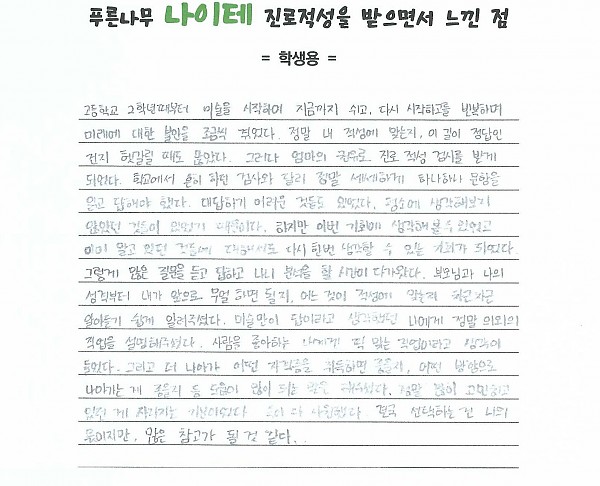 푸른나무 나이테 진로적성을 받으면서 느낀 점
= 학생용 =
고등학교 2학년때부터 미술을 시작하여 지금까지 쉬고, 다시 시작하고를 반복하며
미래에 대한 불안을 조금씩 겪었다. 정말 내 적성에 맞는지, 이 길이 정답인
건지 헷갈릴 때도 많았다. 그러다 엄마의 권유로 진로 적성 검사를 받게
되었다. 학교에서 흔히 하던 검사와 달리 정말 세세하게 하나하나 문항을
읽고 답해야 했다. 대답하기 어려운 것들도 있었다. 평소에 생각해보지
않았던 것들이 있었기 때문이다. 하지만 이번 기회에 생각해 볼 수 있었고
이미 알고 있던 것들에 대해서도 다시 한번 생각할 수 있는 기회가 되었다.
그렇게 많은 질문을 듣고 답하고 나니 분석을 할 시간이 다가왔다. 부모님과 나의
성격부터 내가 앞으로 무얼 하면 될지, 어느 것이 적성에 맞는지 차근차근
알아듣기 쉽게 알려주셨다. 미술만이 답이라고 생각했던 나에게 정말 의외의
직업을 설명해주셨다. 사람을 좋아하는 나에게 딱 맞는 직업이라고 생각이
들었다. 그리고 더 나아가 어떤 자격증을 취득하면 좋을지, 어떤 방향으로
나아가는 게 좋을지 등 도움이 많이 되는 말을 해주셨다. 정말 많이 고민하고
있던 게 사라지는 기분이었다. 결국 선택하는 건 나의
몫이지만, 많은 참고가 될 것 같다..